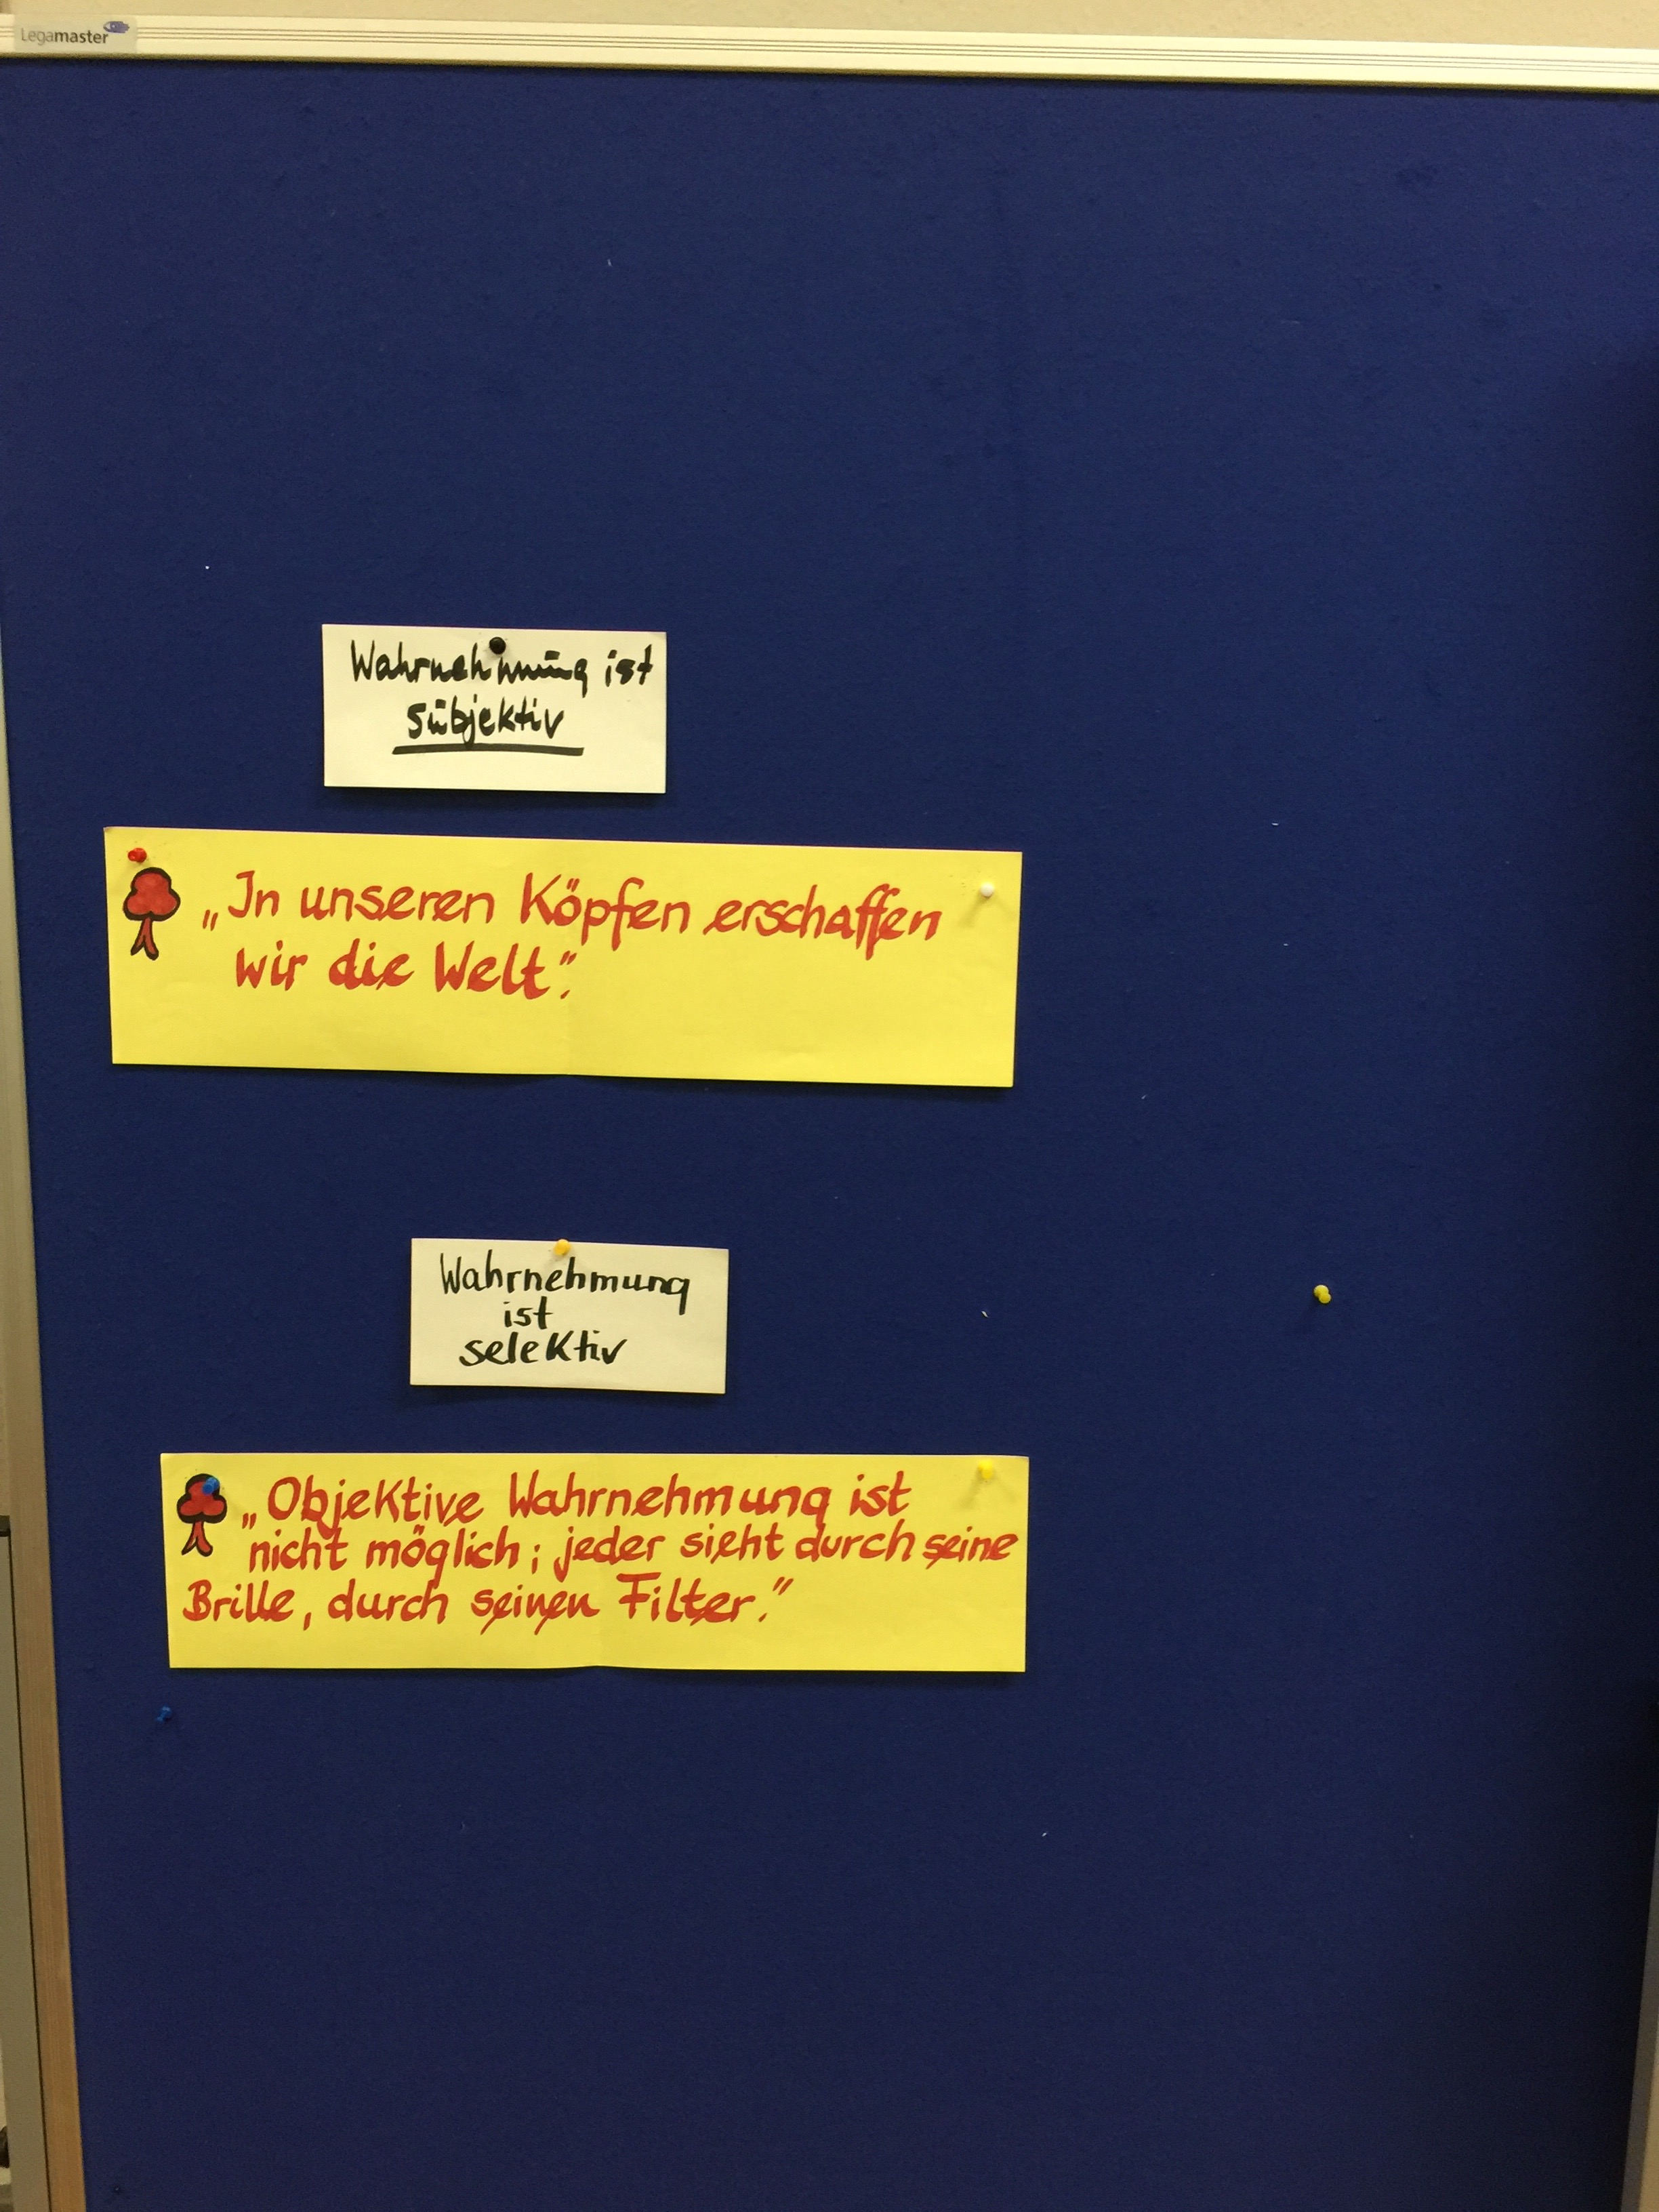 Legamaster
Wahrnehmung ist
subjektiv
„In unseren Köpfen erschaffen
wir die Welt".
Wahrnehmung
ist
selektiv
„Objektive Wahrnehmung ist
nicht möglich; jeder sieht durch seine
Brille, durch seinen Filter."